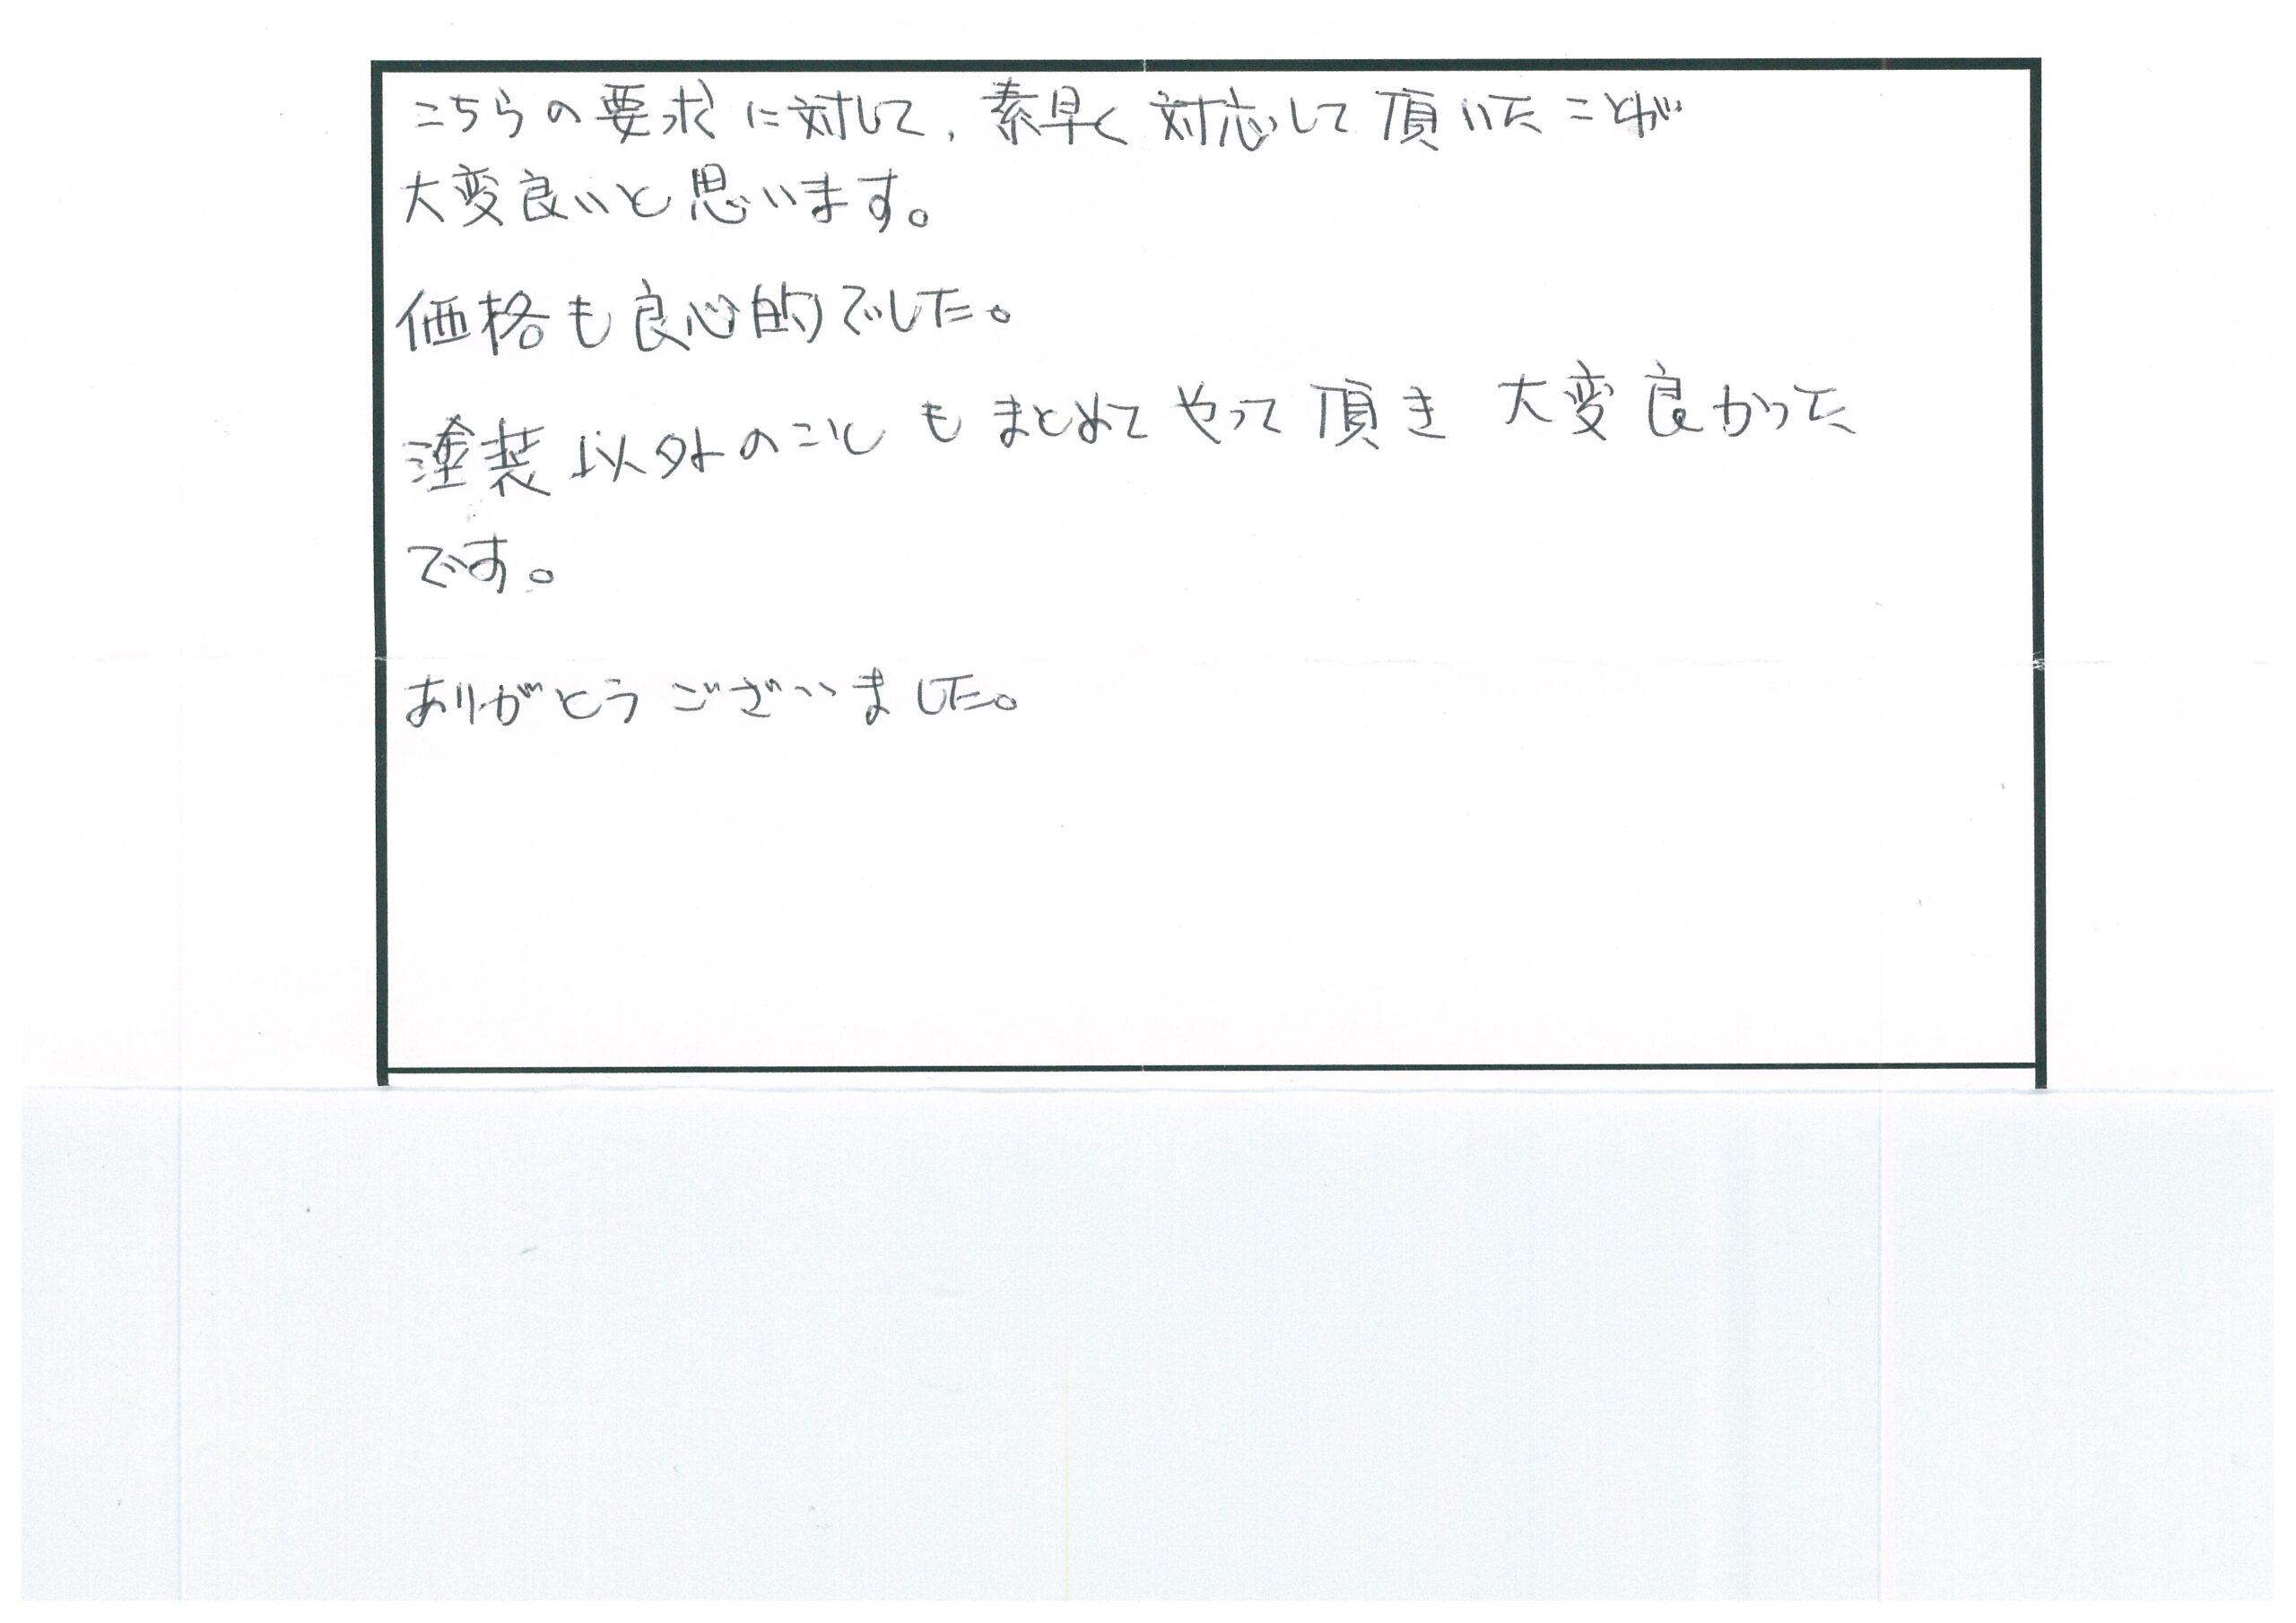 こちらの要求に対して、素早く対応して頂いたことが
大変良いと思います。
価格も良心的でした。
塗装以外のこともまとめてやって頂き 大変良かった
です。
ありがとうございました。